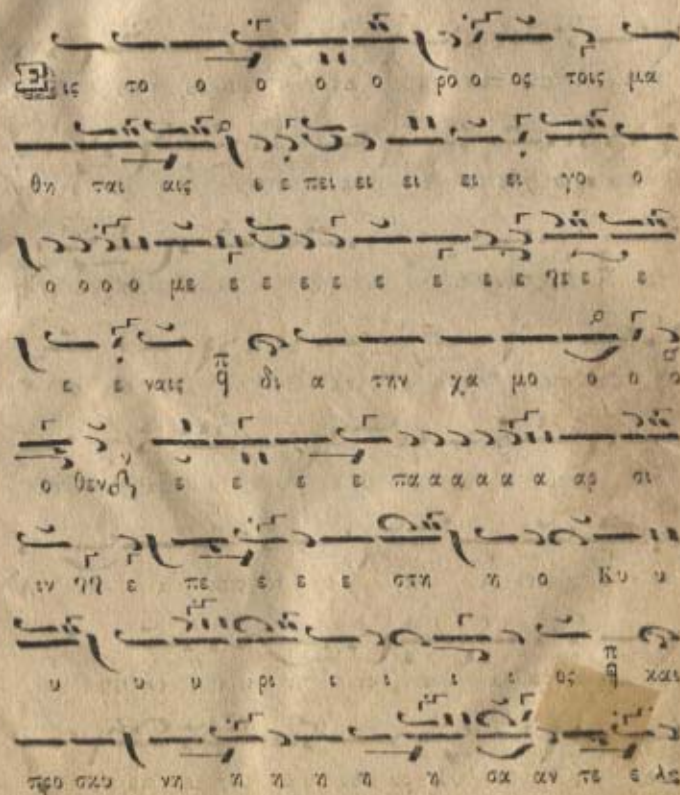 Εις το ο ο ο ο ρο ο ος τοις μα
θη ται αις ε ε πει ει ει ει ει γο ο
ο ο ο ο με ε ε ε ε ε ε ε ε θε ε ε
ε ε ναις δι α την χα μο ο ο ο
ο θεν ε ε ε ε πα α α α α α αρ σι
ιν ε πε ε ε ε στη η ο Κυ υ
υ υ υ ρι ι ι ι ι ος και
προ σκυ νη η η η η η σα αν τε ε